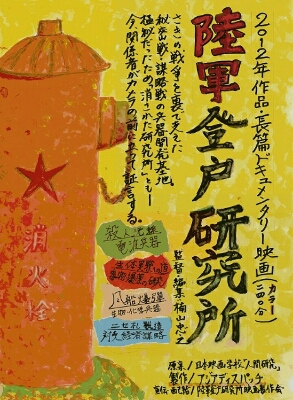 2012年作品・長篇ドキュメンタリー映画(カラー二四〇分)
陸軍登戸研究所
監督・編集 楠山忠之
さきの戦争を裏で支えた
秘密戦・謀略戦の兵器開発基地。
極秘だったため“消された研究所”とも―
今、関係者がカメラの前に立って証言する。
消火栓
殺人光線
電波兵器
生体実験の道
毒物爆薬の研究
風船爆弾
生物・化学兵器
ニセ札製造
対支経済謀略
原案/日本映画学校「人間研究」
製作/アジアディスパッチ
宣伝・配給/陸軍登戸研究所映画製作会